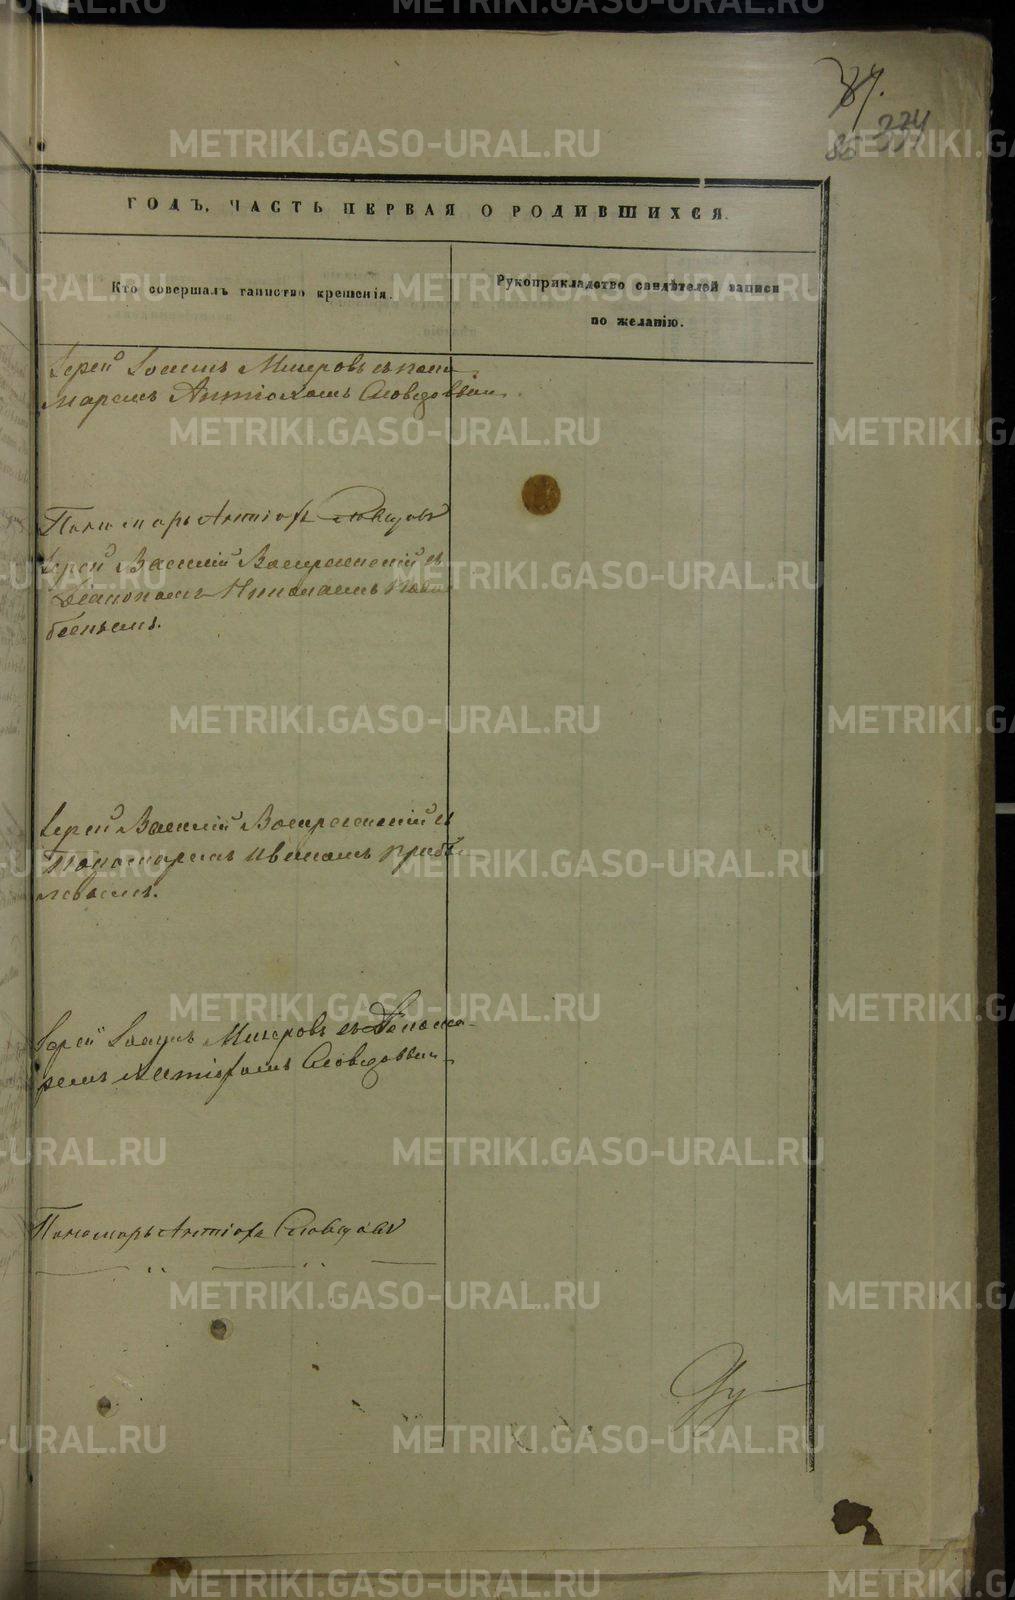 87.
86
224
ГОДЪ, ЧАСТЬ ПЕРВАЯ О РОДИВШИХСЯ.
Кто совершалъ таинство крещенія.
Рукоприкладство свидѣтелей записи
по желанію.
Іерей Іоаннъ Мизеровъ съ поно-
маремъ Антіохомъ Словцовымъ.
Пономарь Антіохъ Словцовъ
Іерей Василій Воскресенскій съ
Діакономъ Николаемъ
Іерей Василій Воскресенскій съ
Пономаремъ Иваномъ Прибы-
левымъ.
Іерей Іоаннъ Мизеровъ съ Понома-
ремъ Антіохомъ Словцовымъ
Пономарь Антіохъ Словцовъ
METRIKI.GASO-URAL.RU